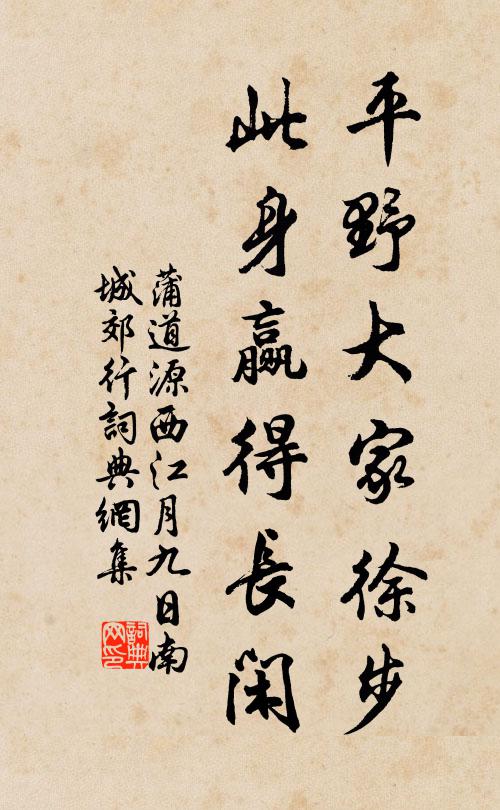 平野大家徐步
此身贏得長閑
蒲道源西江月九日南
城郊行詞典網集
詞典
網印